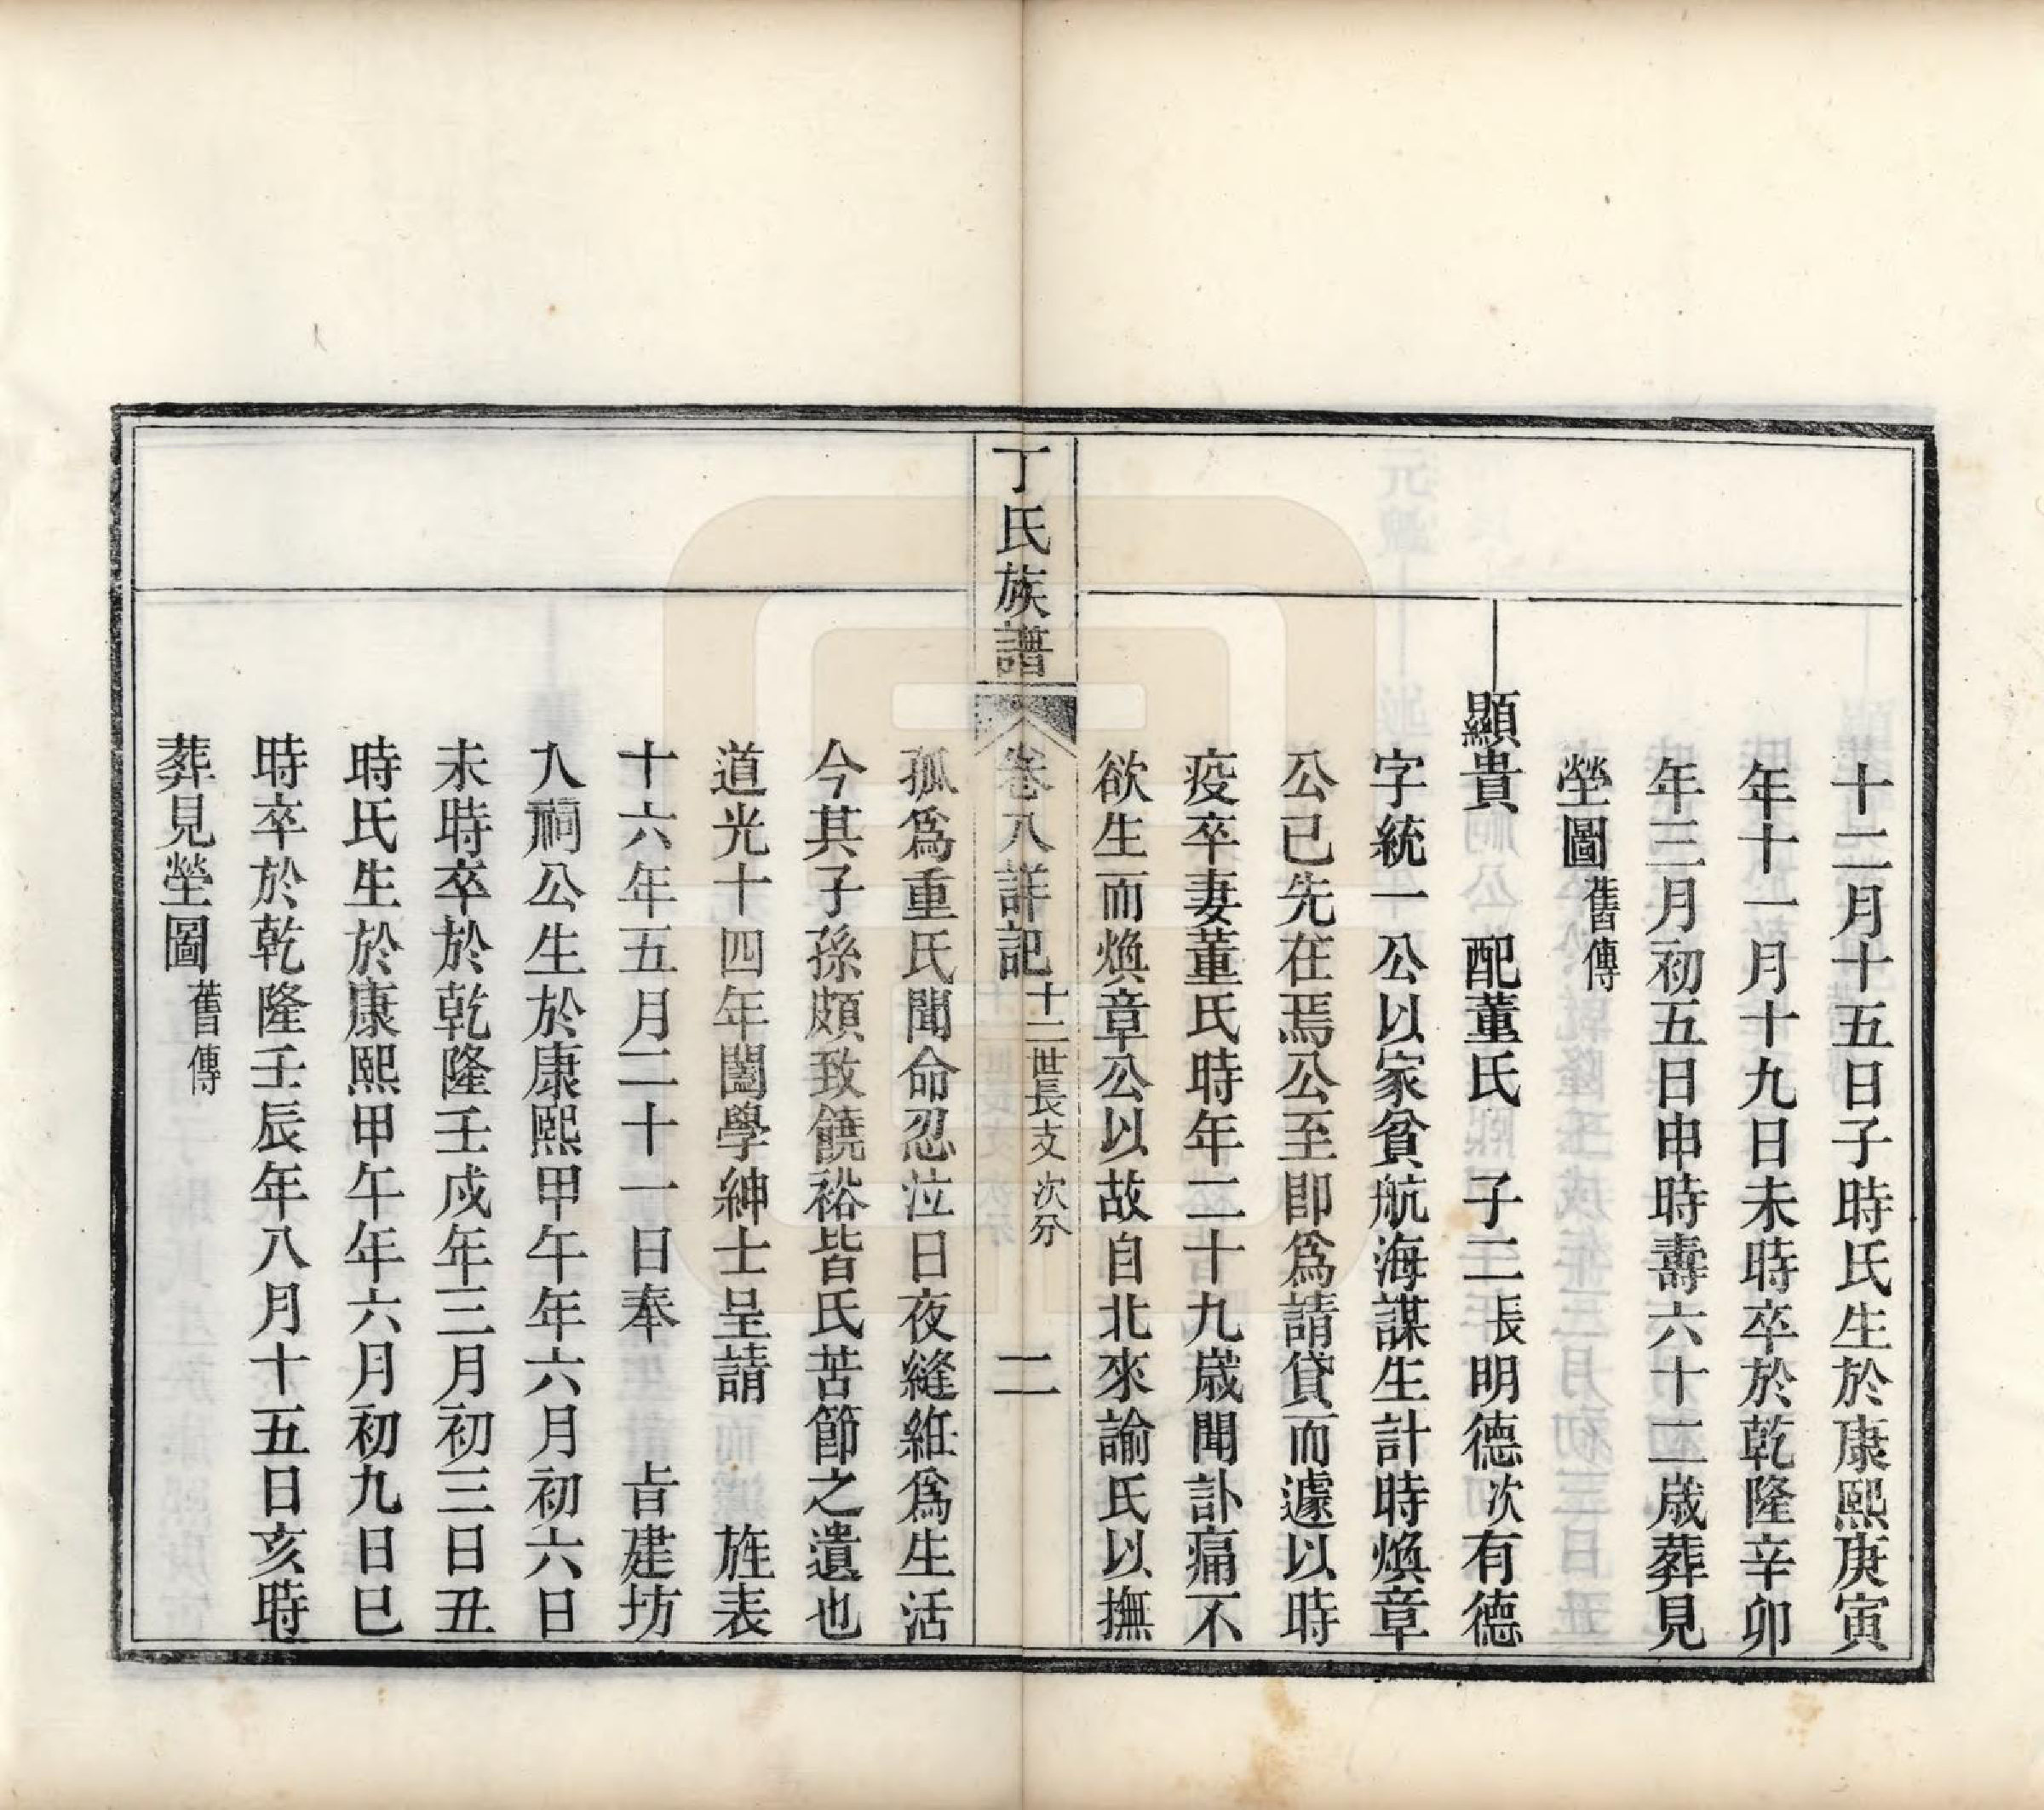 十二月十五日子時氏生於康熙庚寅
年十一月十九日未時卒於乾隆辛卯
年三月初五日申時壽六十二歲葬見
塋圖舊傳
顯貴　配董氏　子二長明德次有德
字統一公以家貧航海謀生計時煥章
公已先在焉公至即爲請貸而遽以時
疫卒妻董氏時年二十九歲聞訃痛不
欲生而煥章公以故自北來諭氏以撫
丁氏族譜　卷八詳記　十二世長支　次分　二
孤爲重氏聞命忍泣日夜縫紝爲生活
今其子孫頗致饒裕皆氏苦節之遺也
道光十四年闔學紳士呈請　旌表
十六年五月二十一日奉　旨建坊
入祠公生於康熙甲午年六月初六日
未時卒於乾隆壬戍年三月初三日丑
時氏生於康熙甲午年六月初九日巳
時卒於乾隆壬辰年八月十五日亥時
葬見塋圖舊傳